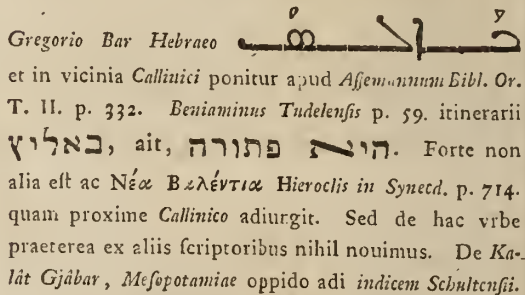 Gregorio Bar Hebraeo
et in vicinia Callinici ponitur apud Aſſemannum Bibl. Or.
T. II. p. 332. Beniaminus Tudelenſis p. 59. itinerarii
באליץ, ait, היא פתורה. Forte non
alia eſt ac Νέα Βαλέντια Hieroclis in Synecd. p. 714.
quam proxime Callinico adiungit. Sed de hac vrbe
praeterea ex aliis ſcriptoribus nihil nouimus. De Ka-
lât Gjâbar, Meſopotamiae oppido adi indicem Schultenſii.